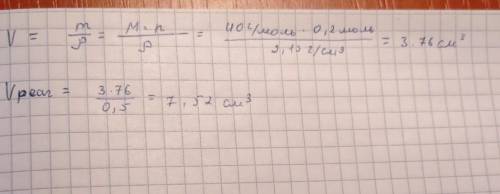 V = m/ρ = M·n/ρ = 40г/моль · 0,2моль / 2,13 г/см³ = 3.76 см³
Vреаг = 3.76/0,5 = 7,52 см³